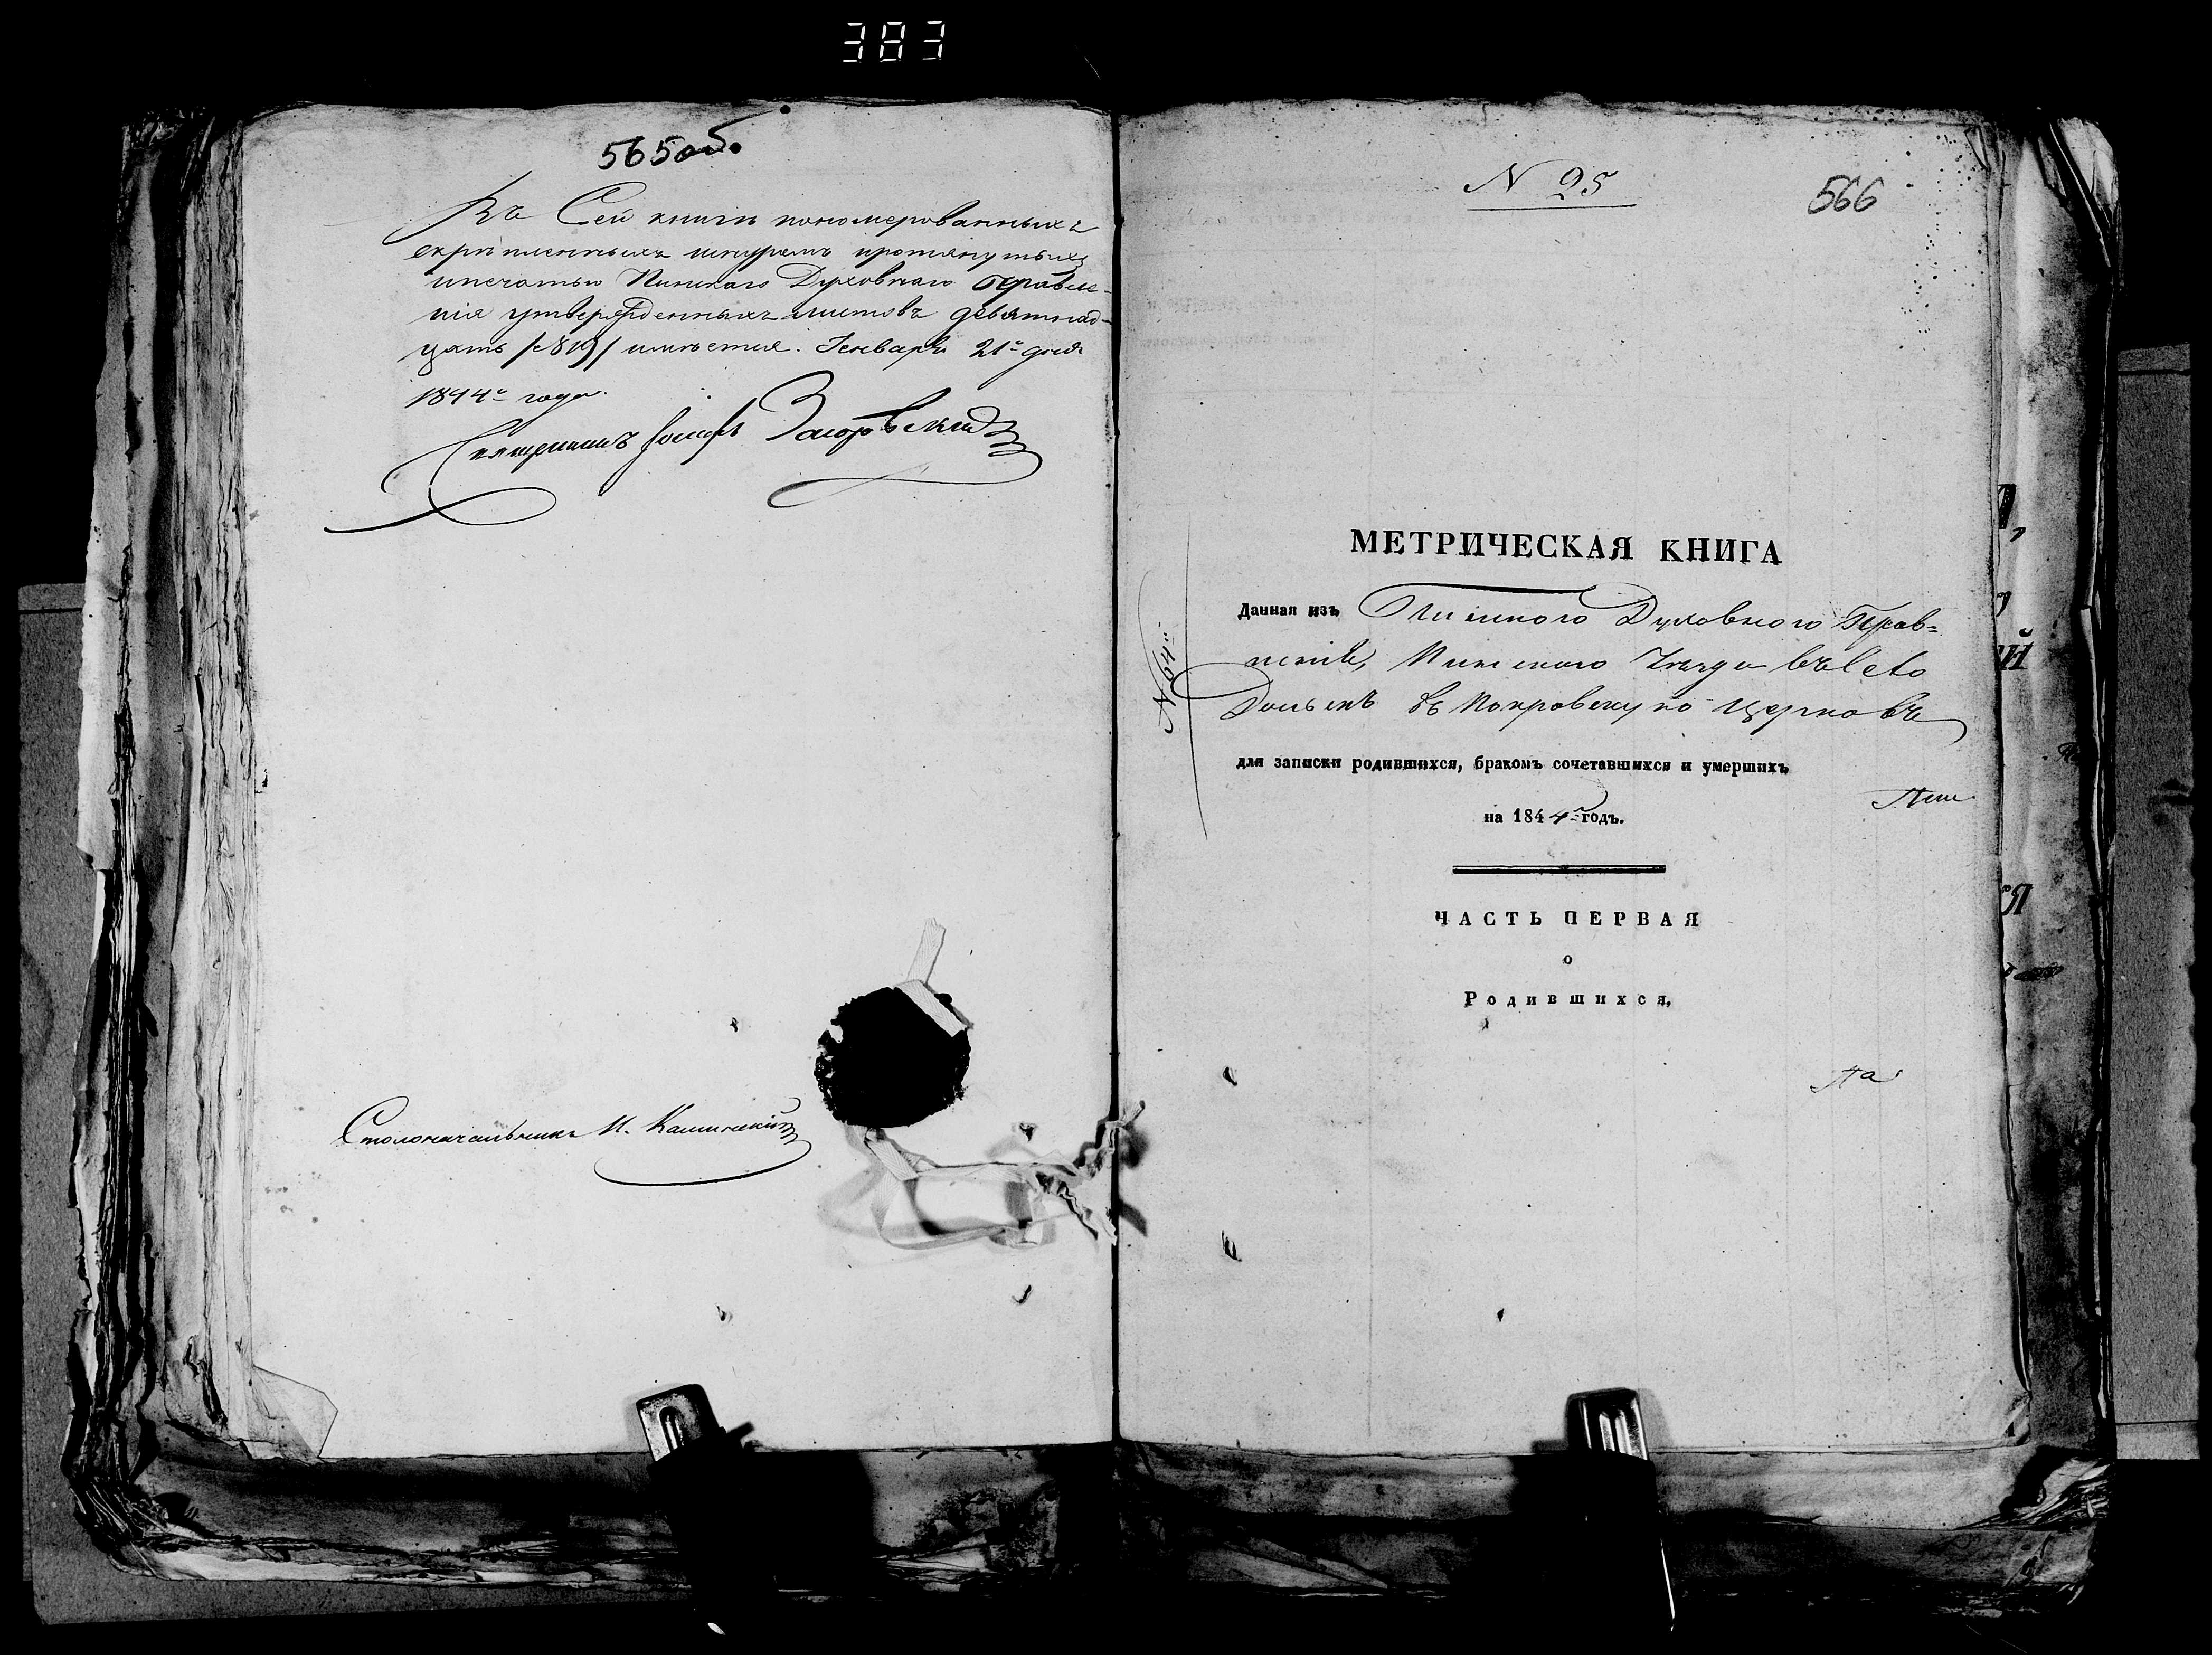 383
565об.
Въ Сей книгѣ пономерованныхъ
скрѣпленныхъ шнуромъ протянутыхъ
и печатью Пинскаго Духовнаго Правле-
нія утвержденныхъ листовъ девятнад-
цать /:№19/ имѣется. Генваря 21го дня
1844го года.
Іосифъ
Столоначальникъ И. Калинскій
N 25
566
МЕТРИЧЕСКАЯ КНИГА
Данная изъ Пинского Духовного Прав=
ленія, Пинского Уѣзда въ село
въ Покровскую церковь
для записки родившихся, бракомъ сочетавшихся и умершихъ
на 1844й годъ.
ЧАСТЬ ПЕРВАЯ
о
Родившихся,